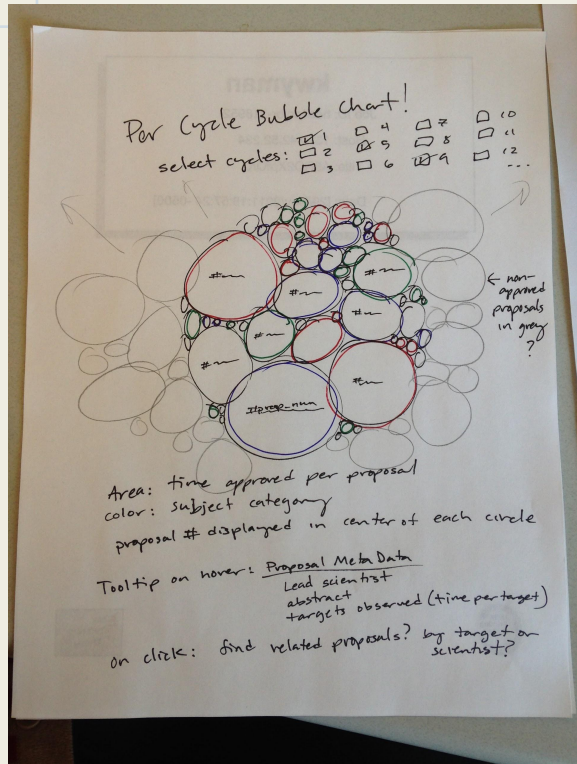 Per Cycle Bubble Chart!
select cycles: 1 4 7 10
2 5 8 11
3 6 9 12
...
← non-
approved
proposals
in grey
?
#prop_num
Area: time approved per proposal
color: subject category
proposal # displayed in center of each circle
Tooltip on hover: Proposal MetaData
Lead scientist
abstract
targets observed (time per target)
on click: find related proposals? by target or
scientist?
kwyman